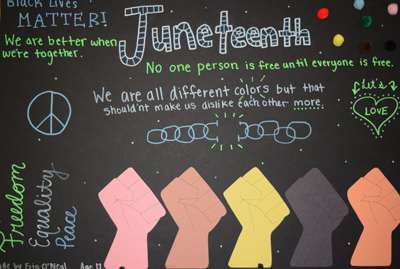 Black Lives
MATTER!
We are better when
we're together.
Juneteenth
No one person is free until everyone is free.
We are all different colors but that
should'nt make us dislike each other more.
Let's
LOVE
Freedom
Equality
Peace
Made by Erin O'Neal Age 12